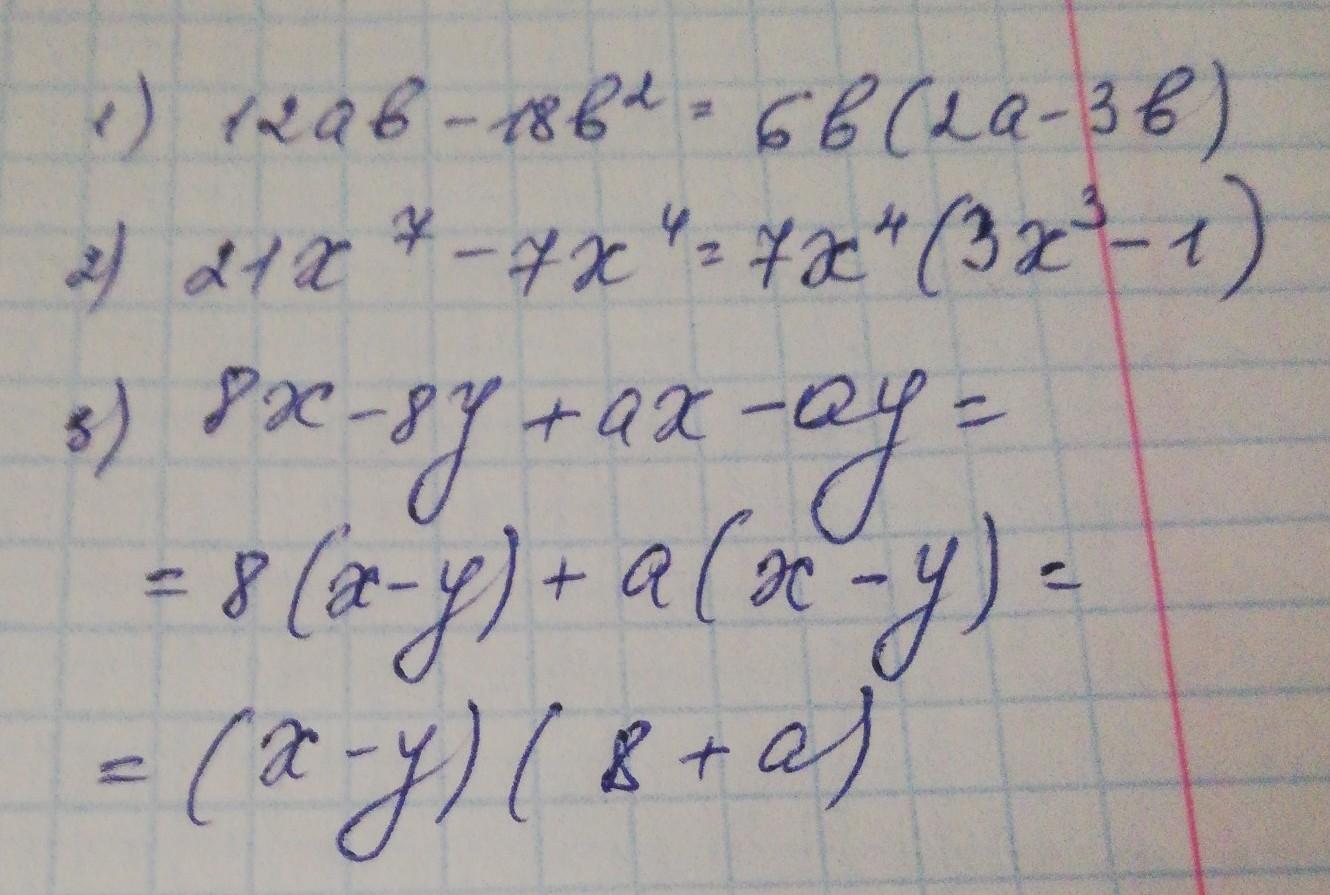 1) 12ab - 18b² = 6b(2a - 3b)
2) 21x⁷ - 7x⁴ = 7x⁴(3x³ - 1)
3) 8x - 8y + ax - ay =
= 8(x - y) + a(x - y) =
= (x - y)(8 + a)